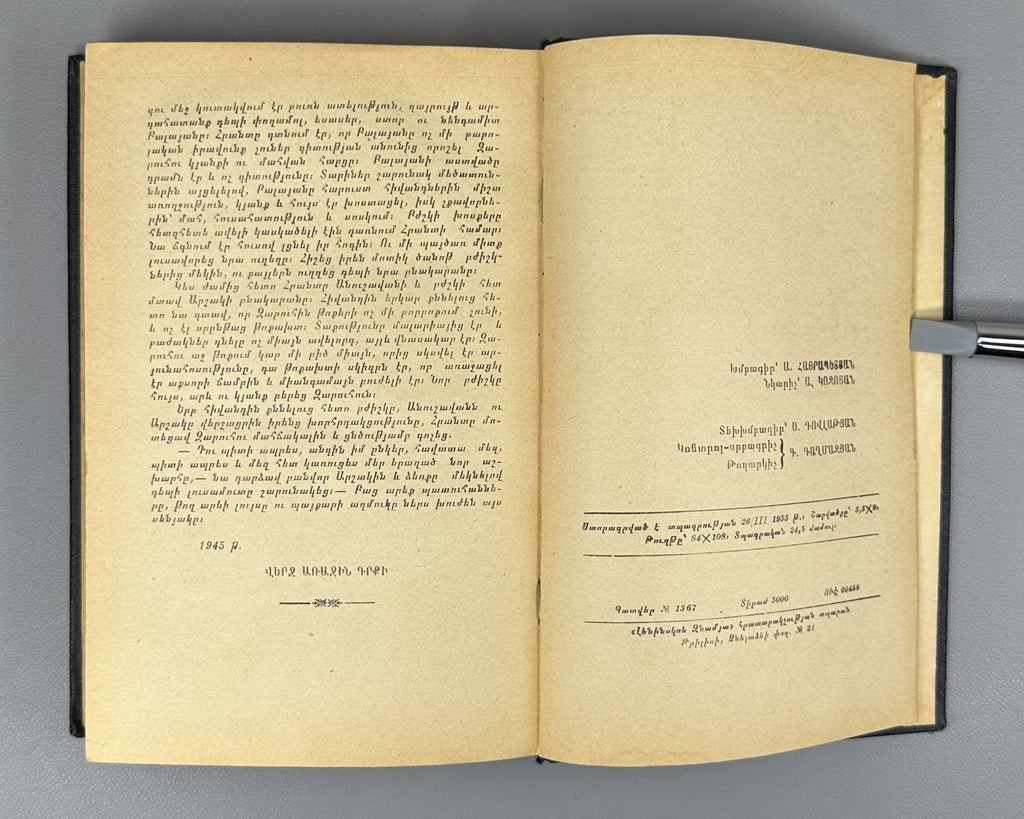 դու մեջ կուտակվում էր բուռն ատելություն, զայրույթ և ար-
գահատանք դեպի փողամոլ, եսասեր, ստոր ու նենգամիտ
Բալայանը։ Հրանտը գտնում էր, որ Բալայանը ոչ մի բարո-
յական իրավունք չուներ գիտության անունից որոշել Զա-
րուհու կյանքի ու մահվան հարցը։ Բալայանի աստվածը
դրամն էր և ոչ գիտությունը։ Տարիներ շարունակ մեծատուն-
ներին այցելելով, Բալայանը հարուստ հիվանդներին միշտ
առողջություն, կյանք և հույս էր խոստացել, իսկ չքավորնե-
րին՝ մահ, հուսահատություն և սոսկում։ Բժշկի խոսքերը
հետզհետե ավելի կասկածելի էին դառնում Հրանտի համար։
Նա ճգնում էր հուսով լցնել իր հոգին։ Ու մի պայծառ միտք
լուսավորեց նրա ուղեղը։ Հիշեց իրեն մոտիկ ծանոթ բժիշկ-
ներից մեկին, ու քայլերն ուղղեց դեպի նրա բնակարանը։
Կես ժամից հետո Հրանտը Անուշավանի և բժշկի հետ
մտավ Արշակի բնակարանը։ Հիվանդին երկար քննելուց հե-
տո նա գտավ, որ Զարուհին թոքերի ոչ մի բորբոքում չունի,
և ոչ էլ սրընթաց թոքախտ։ Տաքությունը մալարիայից էր և
բաժակներ դնելը ոչ միայն ավելորդ, այլև վնասակար էր։ Զա-
րուհու աջ թոքում կար մի բիծ միայն, որից սկսվել էր ար-
յունահոսությունը, դա թոքախտի սկիզբն էր, որ առաջացել
էր աքսորի ճամբին և միանգամայն բուժելի էր։ Նոր բժիշկը
հույս, արև ու կյանք բերեց Զարուհուն։
Երբ հիվանդին քննելուց հետո բժիշկը, Անուշավանն ու
Արշակը վերջացրին իրենց խորհրդակցությունը, Հրանտը մո-
տեցավ Զարուհու մահճակալին և ցնծությամբ գոչեց.
— Դու պիտի ապրես, անգին իմ ընկեր, հավատա մեզ,
պիտի ապրես և մեզ հետ կառուցես մեր երազած նոր աշ-
խարհը,— նա դարձավ բանվոր Արշակին և ձեռքը մեկնելով
դեպի լուսամուտը շարունակեց։— Բաց արեք պատուհաննե-
րը, թող արևի լույսը ու պայքարի աղմուկը ներս խուժեն այս
սենյակը։
1945 թ.
ՎԵՐՋ ԱՌԱՋԻՆ ԳՐՔԻ
Խմբագիր՝ Ա. ՀԱՅՐԱՊԵՏՅԱՆ
Նկարիչ՝ Ա. ԿՈԶՈՅԱՆ
Տեխխմբագիր՝ Ս. ԴՈՎԼԱԹՅԱՆ
Կոնտրոլ-սրբագրիչ
Թողարկիչ } Գ. ԴԱՂՄԱՋՅԱՆ
Ստորագրված է տպագրության 26/III 1955 թ., Շարվածքը՝ 5,5X9,
Թուղթը՝ 84X108, Տպագրական 24,5 մամուլ
Պատվեր № 1367 Տիրաժ 5000 ՈՒԷ 00458
«Լենինսկոե Զնամյա» հրատարակչության տպարան
Թբիլիսի, Ձնելաձեի փող. № 21